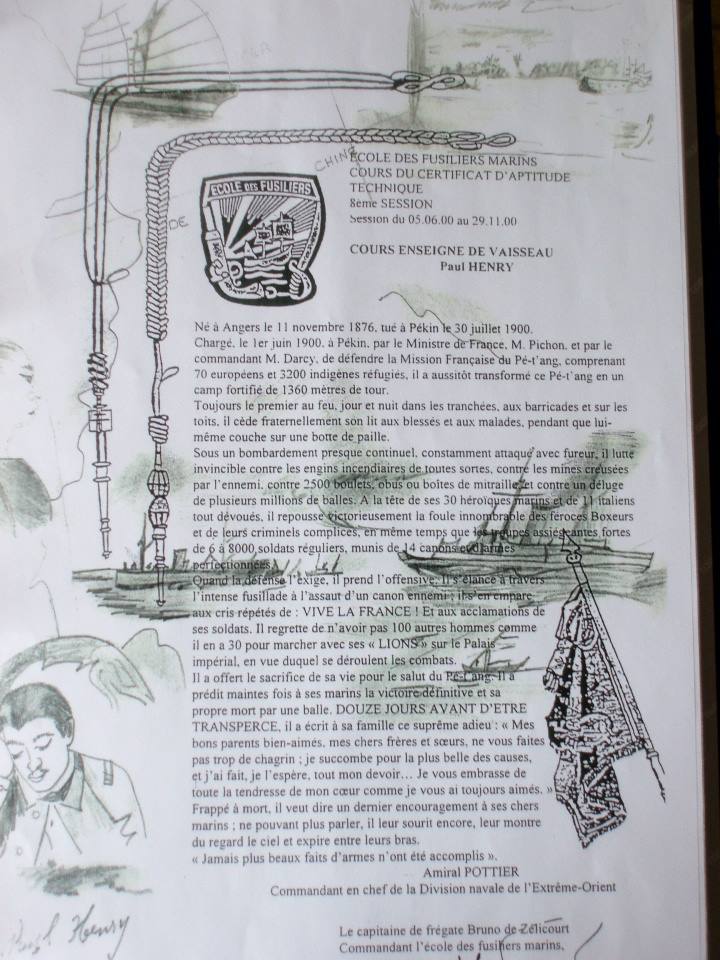 MER
CHINE
DE
ECOLE DES FUSILIERS
ECOLE DES FUSILIERS MARINS
COURS DU CERTIFICAT D'APTITUDE
TECHNIQUE
8ème SESSION
Session du 05.06.00 au 29.11.00
COURS ENSEIGNE DE VAISSEAU
Paul HENRY
Né à Angers le 11 novembre 1876, tué à Pékin le 30 juillet 1900.
Chargé, le 1er juin 1900, à Pékin, par le Ministre de France, M. Pichon, et par le
commandant M. Darcy, de défendre la Mission Française du Pé-t'ang, comprenant
70 européens et 3200 indigènes réfugiés, il a aussitôt transformé ce Pé-t'ang en un
camp fortifié de 1360 mètres de tour.
Toujours le premier au feu, jour et nuit dans les tranchées, aux barricades et sur les
toits, il cède fraternellement son lit aux blessés et aux malades, pendant que lui-
même couche sur une botte de paille.
Sous un bombardement presque continuel, constamment attaqué avec fureur, il lutte
invincible contre les engins incendiaires de toutes sortes, contre les mines creusées
par l'ennemi, contre 2500 boulets, obus ou boîtes de mitraille et contre un déluge
de plusieurs millions de balles. A la tête de ses 30 héroïques marins et de 11 italiens
tout dévoués, il repousse victorieusement la foule innombrable des féroces Boxeurs
et de leurs criminels complices, en même temps que les troupes assiégeantes fortes
de 6 à 8000 soldats réguliers, munis de 14 canons et d'armes
perfectionnées.
Quand la défense l'exige, il prend l'offensive. Il s'élance à travers
l'intense fusillade à l'assaut d'un canon ennemi ; ils s'en empare
aux cris répétés de : VIVE LA FRANCE ! Et aux acclamations de
ses soldats. Il regrette de n'avoir pas 100 autres hommes comme
il en a 30 pour marcher avec ses « LIONS » sur le Palais
impérial, en vue duquel se déroulent les combats.
Il a offert le sacrifice de sa vie pour le salut du Pé-t'ang. Il a
prédit maintes fois à ses marins la victoire définitive et sa
propre mort par une balle. DOUZE JOURS AVANT D'ETRE
TRANSPERCE, il a écrit à sa famille ce suprême adieu : « Mes
bons parents bien-aimés, mes chers frères et sœurs, ne vous faites
pas trop de chagrin ; je succombe pour la plus belle des causes,
et j'ai fait, je l'espère, tout mon devoir… Je vous embrasse de
toute la tendresse de mon cœur comme je vous ai toujours aimés. »
Frappé à mort, il veut dire un dernier encouragement à ses chers
marins ; ne pouvant plus parler, il leur sourit encore, leur montre
du regard le ciel et expire entre leurs bras.
« Jamais plus beaux faits d'armes n'ont été accomplis ».
Amiral POTTIER
Commandant en chef de la Division navale de l'Extrême-Orient
Paul Henry
Le capitaine de frégate Bruno de Zélicourt
Commandant l'école des fusiliers marins,